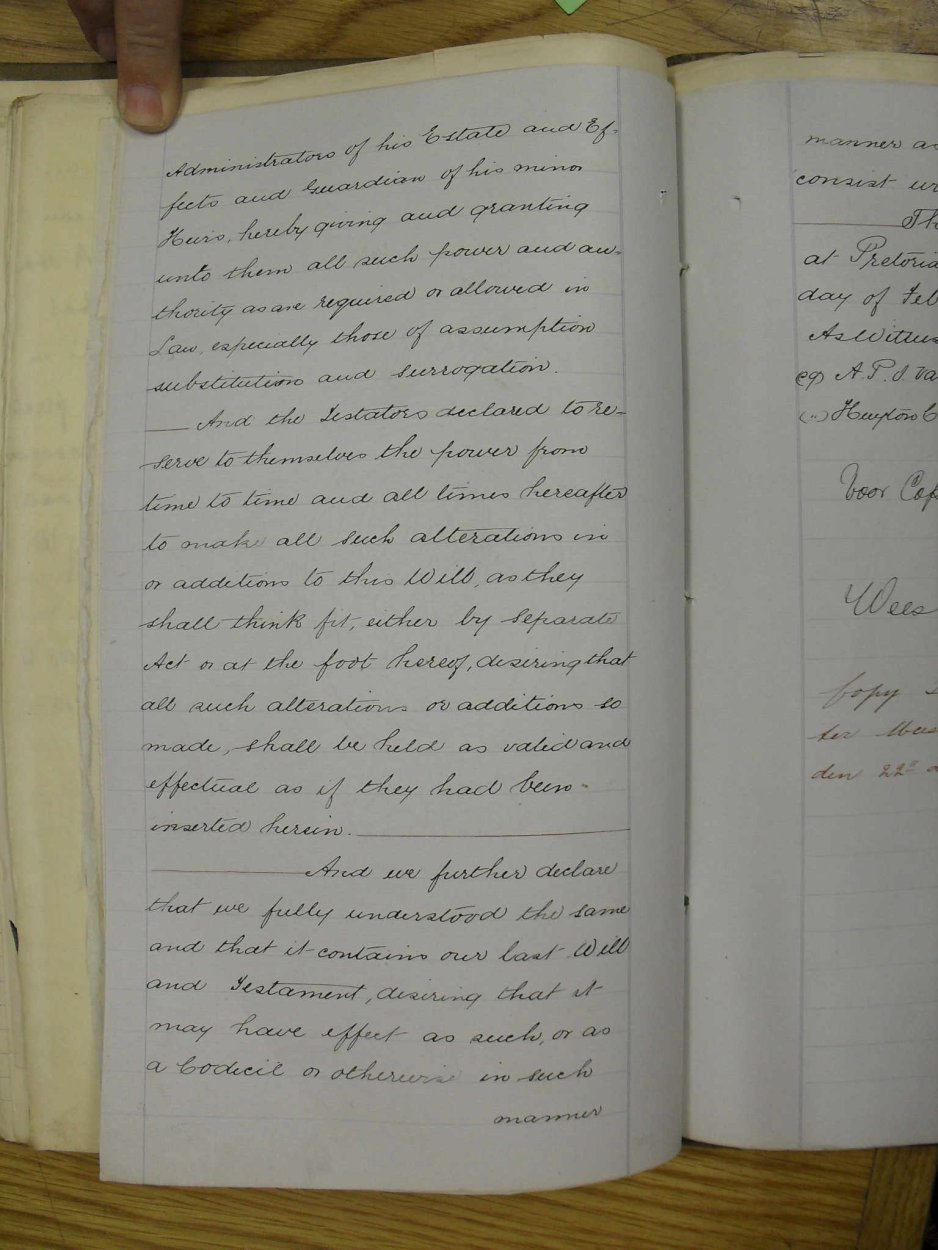 Administrators of his Estate and Ef-
fects and Guardian of his minor
Heirs, hereby giving and granting
unto them all such power and au-
thority as are required or allowed in
Law, especially those of assumption
substitution and surrogation.
And the Testators declared to re-
serve to themselves the power from
time to time and all times hereafter
to make all such alterations in
or additions to this Will, as they
shall think fit, either by separate
Act or at the foot hereof, desiring that
all such alterations or additions so
made, shall be held as valid and
effectual as if they had been
inserted herein.
And we further declare
that we fully understood the same
and that it contains our last Will
and Testament, desiring that it
may have effect as such, or as
a Codicil or otherwise in such
manner
manner
consist
Th
at Pretoria
day of Feb
As Witnes
A. P. J. Va
Voor Cop
Wees
Copy
ter
den 22